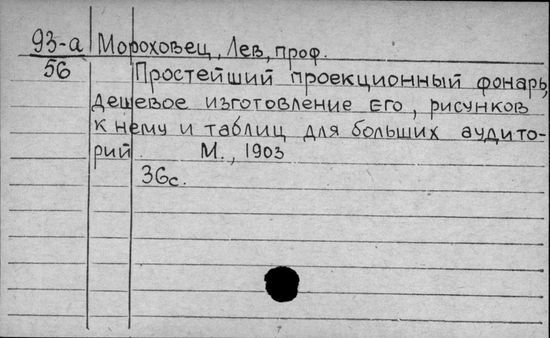 93-а Мороховец, Лев, проф.
56 Простейший проекционный фонарь,
дешевое изготовление его, рисунков
к нему и таблиц для больших аудито-
рий. М., 1903
36с.